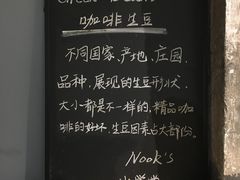 咖啡生豆
不同国家、产地、庄园、
品种，展现的生豆形状、
大小都是不一样的，精品咖
啡的好坏，生豆因素占大部份。
Nook's